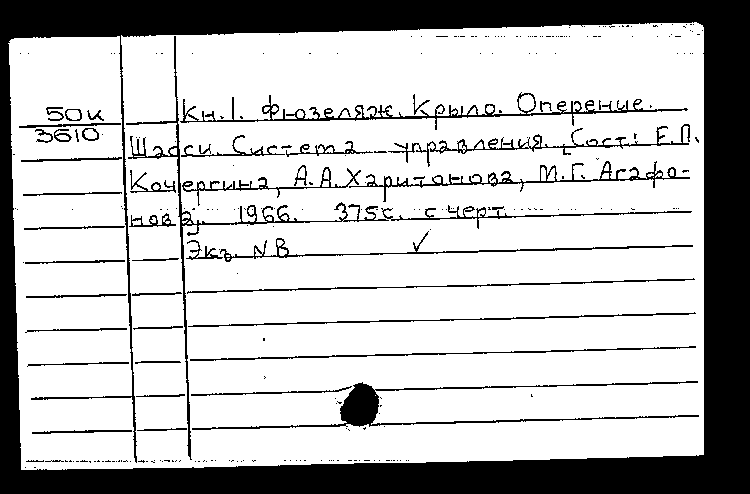 50к
3610
Кн.1. Фюзеляж. Крыло. Оперение.
Шасси. Система управления. [Сост: Е.П.
Кочергина, А.А. Харитонова, М.Г. Агафо-
нова]. 1966. 375с. с черт.
Экз. NB ✓